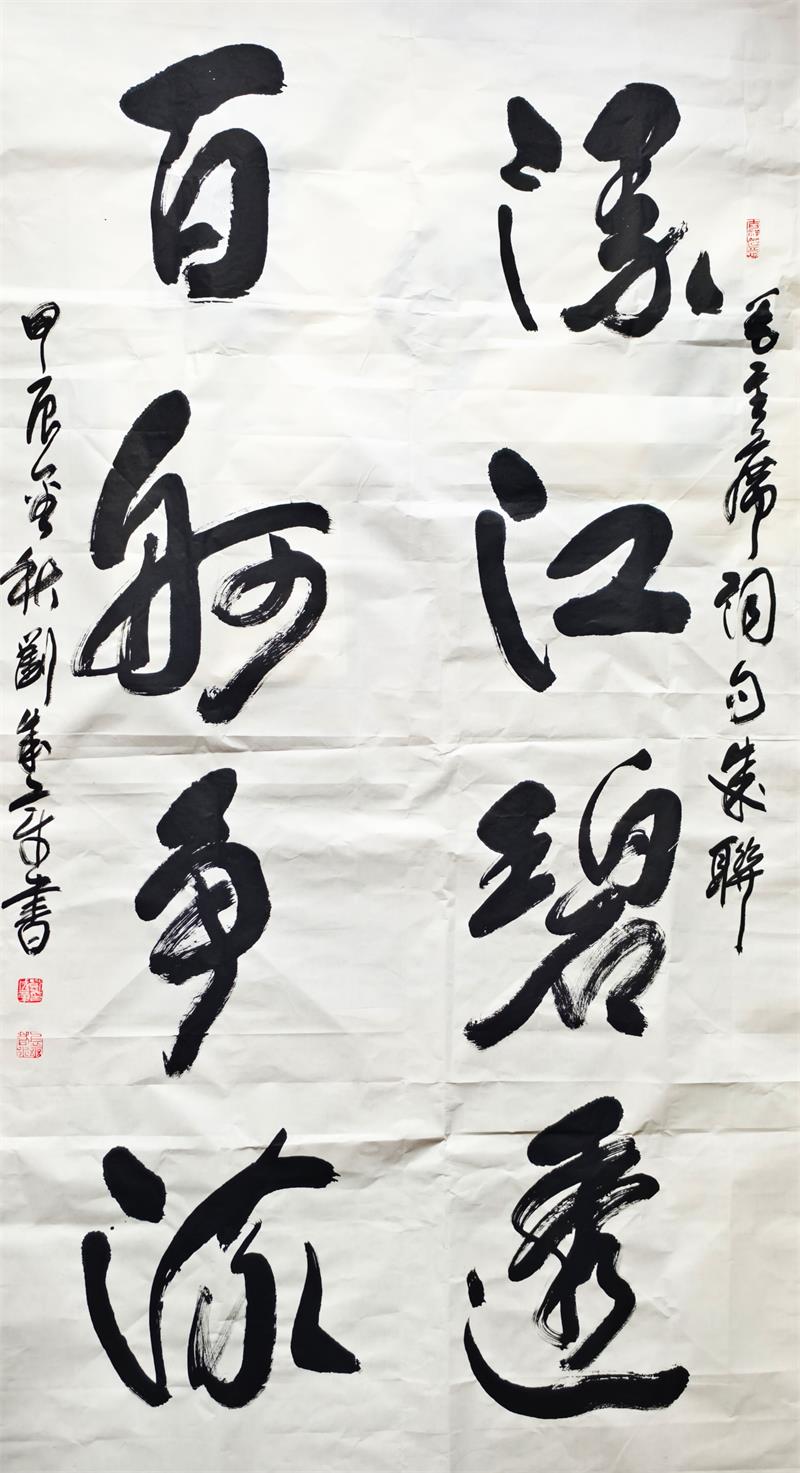 毛主席词句成联
漫江碧透
百舸争流
甲辰金秋劉書